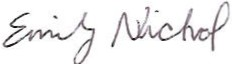 Emily Nichol